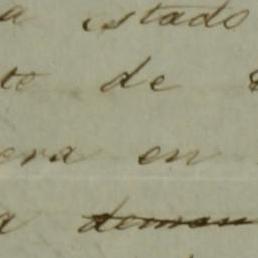 a estado
to de
era en
a